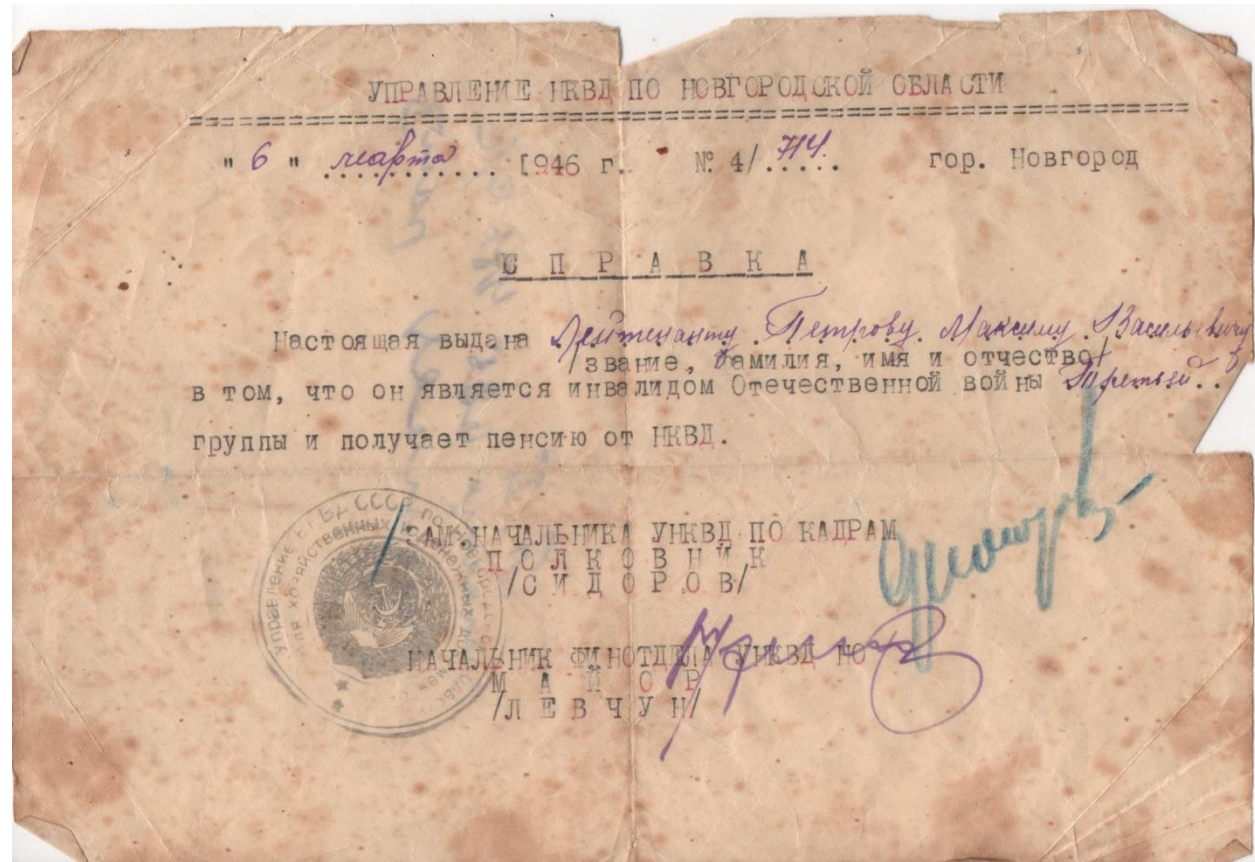 УПРАВЛЕНИЕ НКВД ПО НОВГОРОДСКОЙ ОБЛАСТИ
" 6 " марта 1946 г. № 4/714. гор. Новгород
СПРАВКА
Настоящая выдана Лейтенанту Петрову Максиму Васильевичу
/звание, фамилия, имя и отчество/
в том, что он является инвалидом Отечественной войны Третьей..
группы и получает пенсию от НКВД.
ЗАМ.НАЧАЛЬНИКА УНКВД ПО КАДРАМ
ПОЛКОВНИК
/СИДОРОВ/
НАЧАЛЬНИК ФИНОТДЕЛА УНКВД НО
МАЙОР
/ЛЕВЧУН/
Управление НКВД СССР по
для хозяйственных и денежных